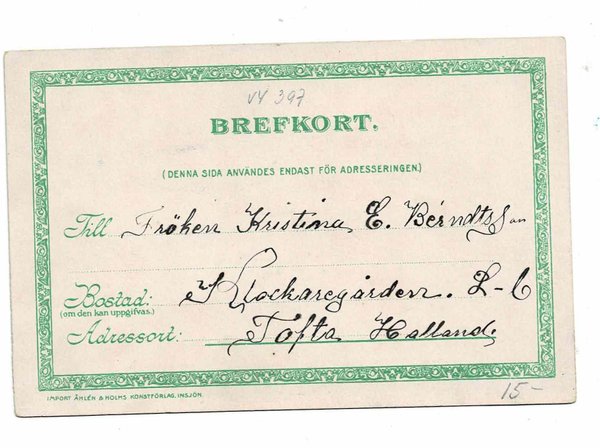 VY 397
BREFKORT.
(DENNA SIDA ANVÄNDES ENDAST FÖR ADRESSERINGEN.)
Till Fröken Kristina E. Berndtsson
Bostad: Klockaregården. L-C
(om den kan uppgifvas.)
Adressort: Tofta Halland.
IMPORT ÅHLÉN & HOLMS KONSTFÖRLAG, INSJÖN.
15-